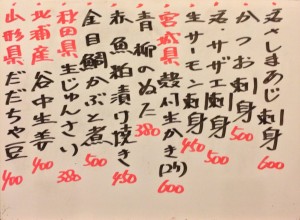 ・活さしまあじ刺身 600
・かつお刺身 500
・活・サザエ刺身 500
・生サーモン刺身 450
・青柳のぬた 380
・宮城県殻付生かき(2ケ) 600
・赤魚粕漬け焼き 450
・金目鯛かぶと煮 500
・秋田県生じゅんさい 380
・北浦産谷中生姜 400
・山形県だだちゃ豆 400